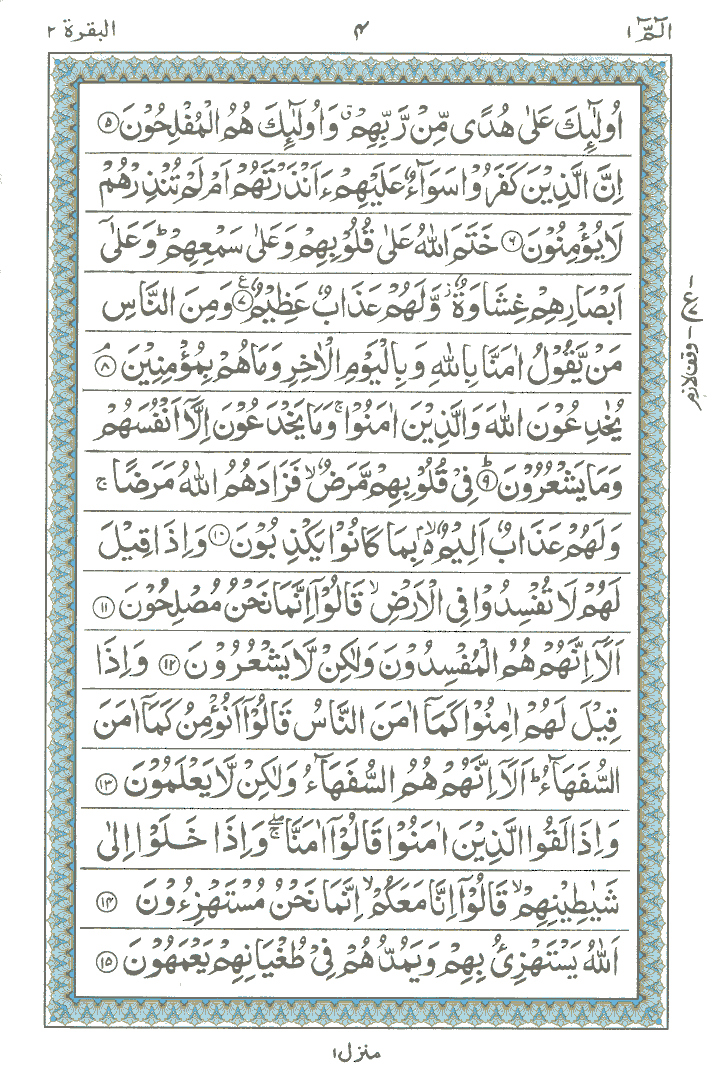 الٓمّٓ ۱ ۴ البقرة ۲
اُولٰٓئِكَ عَلٰى هُدًى مِّنْ رَّبِّهِمْ ۗ وَاُولٰٓئِكَ هُمُ الْمُفْلِحُوْنَ ۝۵
اِنَّ الَّذِيْنَ كَفَرُوْا سَوَآءٌ عَلَيْهِمْ ءَاَنْذَرْتَهُمْ اَمْ لَمْ تُنْذِرْهُمْ
لَا يُؤْمِنُوْنَ ۝۶ خَتَمَ اللّٰهُ عَلٰى قُلُوْبِهِمْ وَعَلٰى سَمْعِهِمْ ؕ وَعَلٰٓى
اَبْصَارِهِمْ غِشَاوَةٌ ز وَّلَهُمْ عَذَابٌ عَظِيْمٌ ۝۷ ع وَمِنَ النَّاسِ
مَنْ يَّقُوْلُ اٰمَنَّا بِاللّٰهِ وَبِالْيَوْمِ الْاٰخِرِ وَمَا هُمْ بِمُؤْمِنِيْنَ ۝۸ ۘ
يُخٰدِعُوْنَ اللّٰهَ وَالَّذِيْنَ اٰمَنُوْا ۚ وَمَا يَخْدَعُوْنَ اِلَّآ اَنْفُسَهُمْ
وَمَا يَشْعُرُوْنَ ۝۹ ؕ فِيْ قُلُوْبِهِمْ مَّرَضٌ ۙ فَزَادَهُمُ اللّٰهُ مَرَضًا ۚ
وَلَهُمْ عَذَابٌ اَلِيْمٌ ۢۙ بِمَا كَانُوْا يَكْذِبُوْنَ ۝۱۰ وَاِذَا قِيْلَ
لَهُمْ لَا تُفْسِدُوْا فِى الْاَرْضِ ۙ قَالُوْٓا اِنَّمَا نَحْنُ مُصْلِحُوْنَ ۝۱۱
اَلَآ اِنَّهُمْ هُمُ الْمُفْسِدُوْنَ وَلٰكِنْ لَّا يَشْعُرُوْنَ ۝۱۲ وَاِذَا
قِيْلَ لَهُمْ اٰمِنُوْا كَمَآ اٰمَنَ النَّاسُ قَالُوْٓا اَنُؤْمِنُ كَمَآ اٰمَنَ
السُّفَهَآءُ ؕ اَلَآ اِنَّهُمْ هُمُ السُّفَهَآءُ وَلٰكِنْ لَّا يَعْلَمُوْنَ ۝۱۳
وَاِذَا لَقُوا الَّذِيْنَ اٰمَنُوْا قَالُوْٓا اٰمَنَّا ۖۚ وَاِذَا خَلَوْا اِلٰى
شَيٰطِيْنِهِمْ ۙ قَالُوْٓا اِنَّا مَعَكُمْ ۙ اِنَّمَا نَحْنُ مُسْتَهْزِءُوْنَ ۝۱۴
اَللّٰهُ يَسْتَهْزِئُ بِهِمْ وَيَمُدُّهُمْ فِيْ طُغْيَانِهِمْ يَعْمَهُوْنَ ۝۱۵
وقف لازم
منزل۱